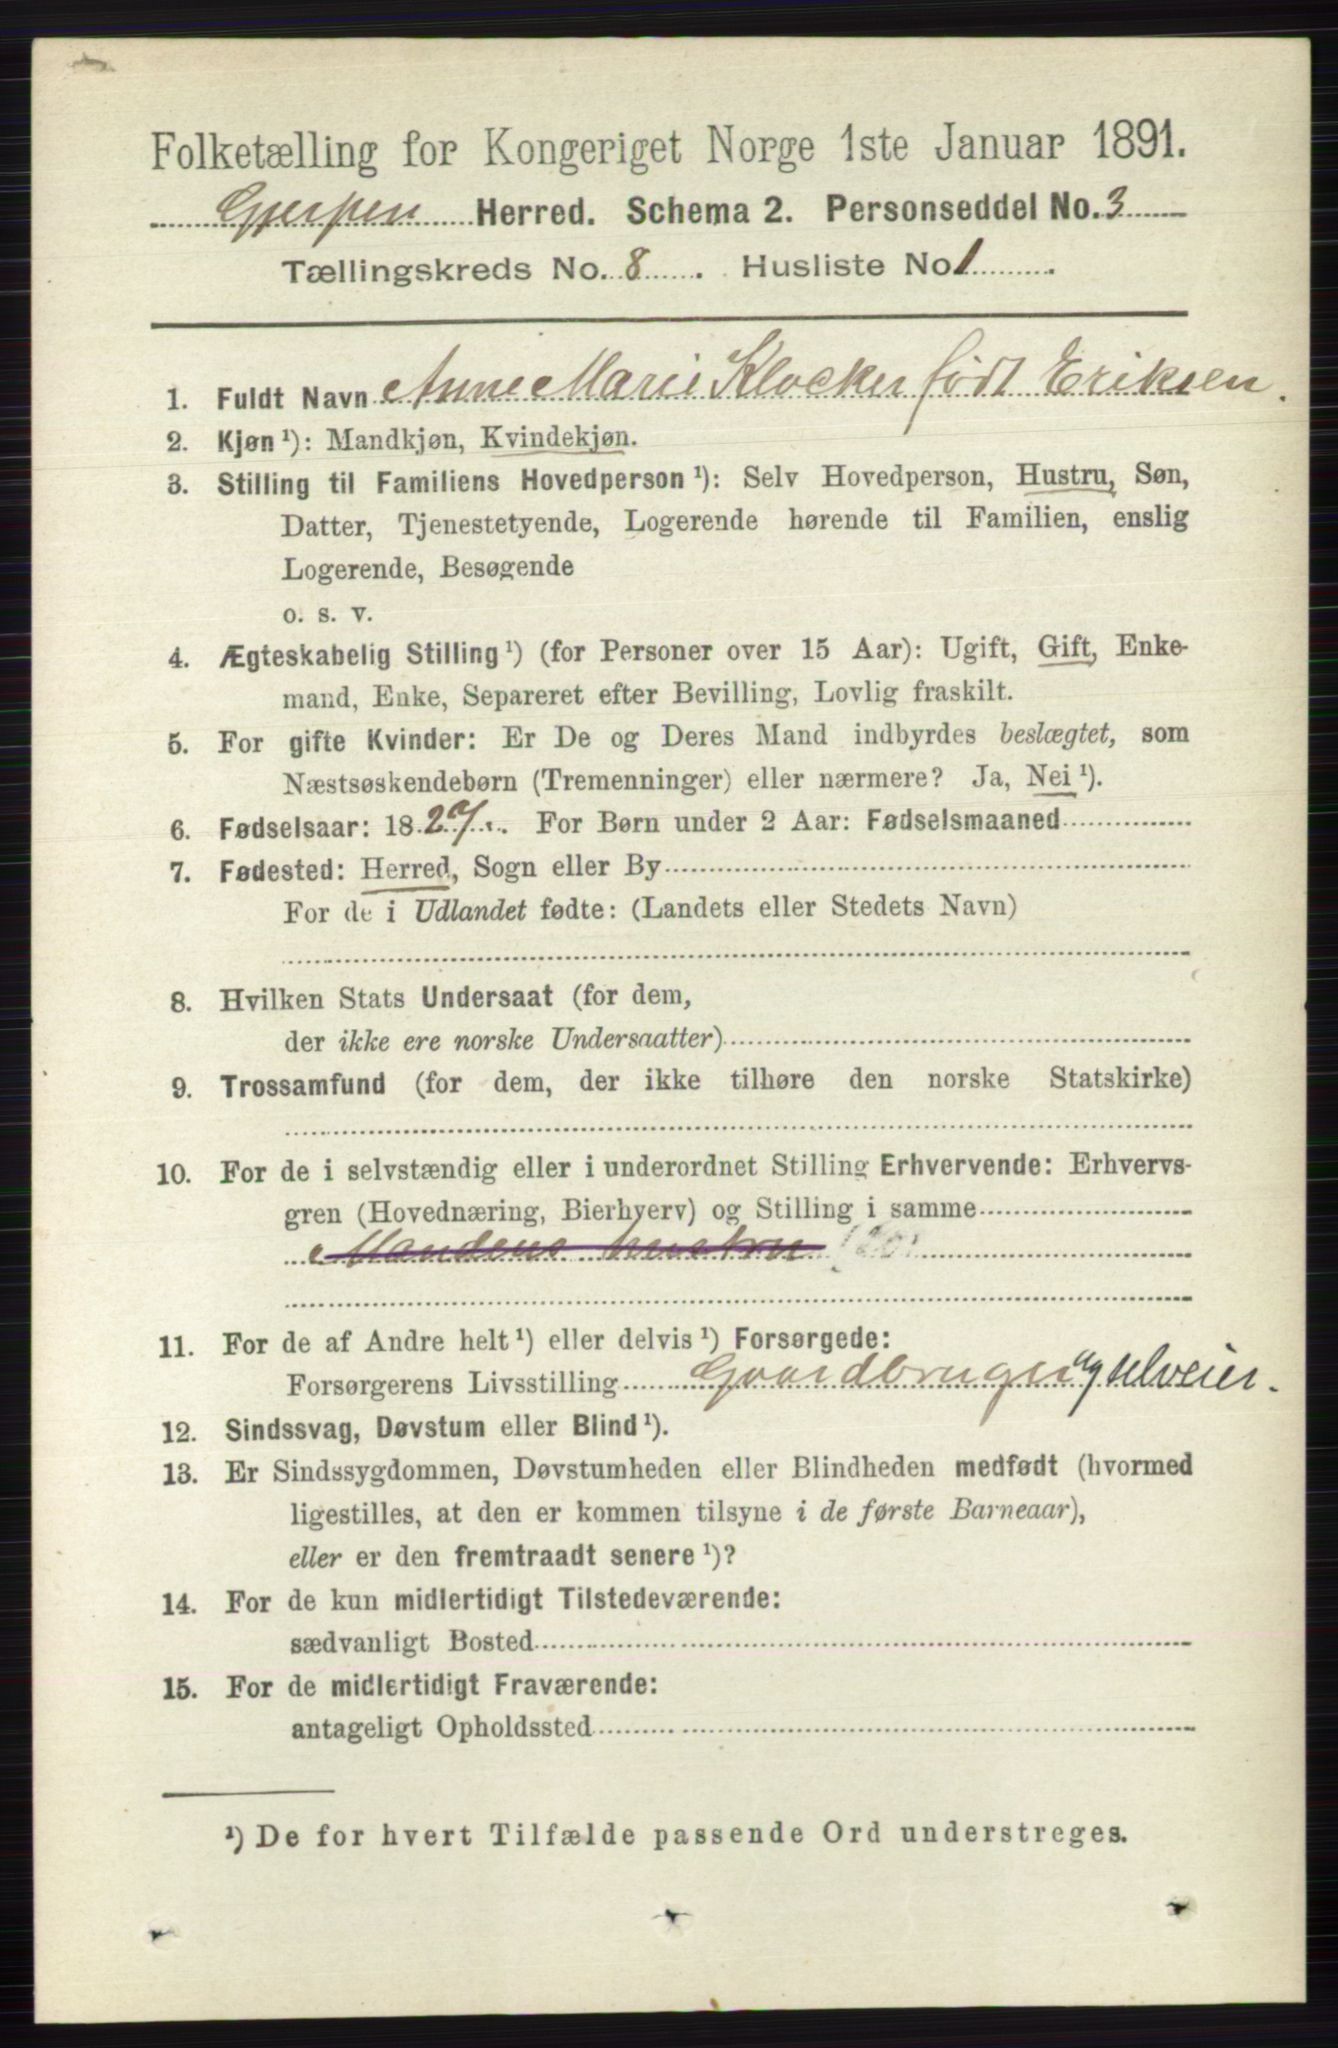 Folketælling for Kongeriget Norge 1ste Januar 1891.
Gjerpen Herred. Schema 2. Personseddel No. 3
Tællingskreds No. 8 . Husliste No 1 .
1. Fuldt Navn Anne Marie Klocker født Eriksen.
2. Kjøn ¹): Mandkjøn, Kvindekjøn.
3. Stilling til Familiens Hovedperson ¹): Selv Hovedperson, Hustru, Søn,
Datter, Tjenestetyende, Logerende hørende til Familien, enslig
Logerende, Besøgende
o. s. v.
4. Ægteskabelig Stilling ¹) (for Personer over 15 Aar): Ugift, Gift, Enke-
mand, Enke, Separeret efter Bevilling, Lovlig fraskilt.
5. For gifte Kvinder: Er De og Deres Mand indbyrdes beslægtet, som
Næstsøskendebørn (Tremenninger) eller nærmere? Ja, Nei ¹).
6. Fødselsaar: 18 29. For Børn under 2 Aar: Fødselsmaaned
7. Fødested: Herred, Sogn eller By
For de i Udlandet fødte: (Landets eller Stedets Navn)
8. Hvilken Stats Undersaat (for dem,
der ikke ere norske Undersaatter)
9. Trossamfund (for dem, der ikke tilhøre den norske Statskirke)
10. For de i selvstændig eller i underordnet Stilling Erhvervende: Erhvervs-
gren (Hovednæring, Bierhverv) og Stilling i samme
Mandens hustru
11. For de af Andre helt ¹) eller delvis ¹) Forsørgede:
Forsørgerens Livsstilling Gaardbruger og selveier.
12. Sindssvag, Døvstum eller Blind ¹).
13. Er Sindssygdommen, Døvstumheden eller Blindheden medfødt (hvormed
ligestilles, at den er kommen tilsyne i de første Barneaar),
eller er den fremtraadt senere ¹)?
14. For de kun midlertidigt Tilstedeværende:
sædvanligt Bosted
15. For de midlertidigt Fraværende:
antageligt Opholdssted
¹) De for hvert Tilfælde passende Ord understreges.